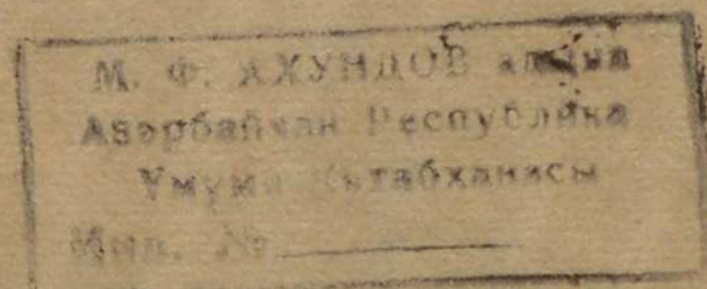 М. Ф. АХУНДОВ адына
Азәрбайҹан Республика
Үмуми Китабханасы
Инв. №